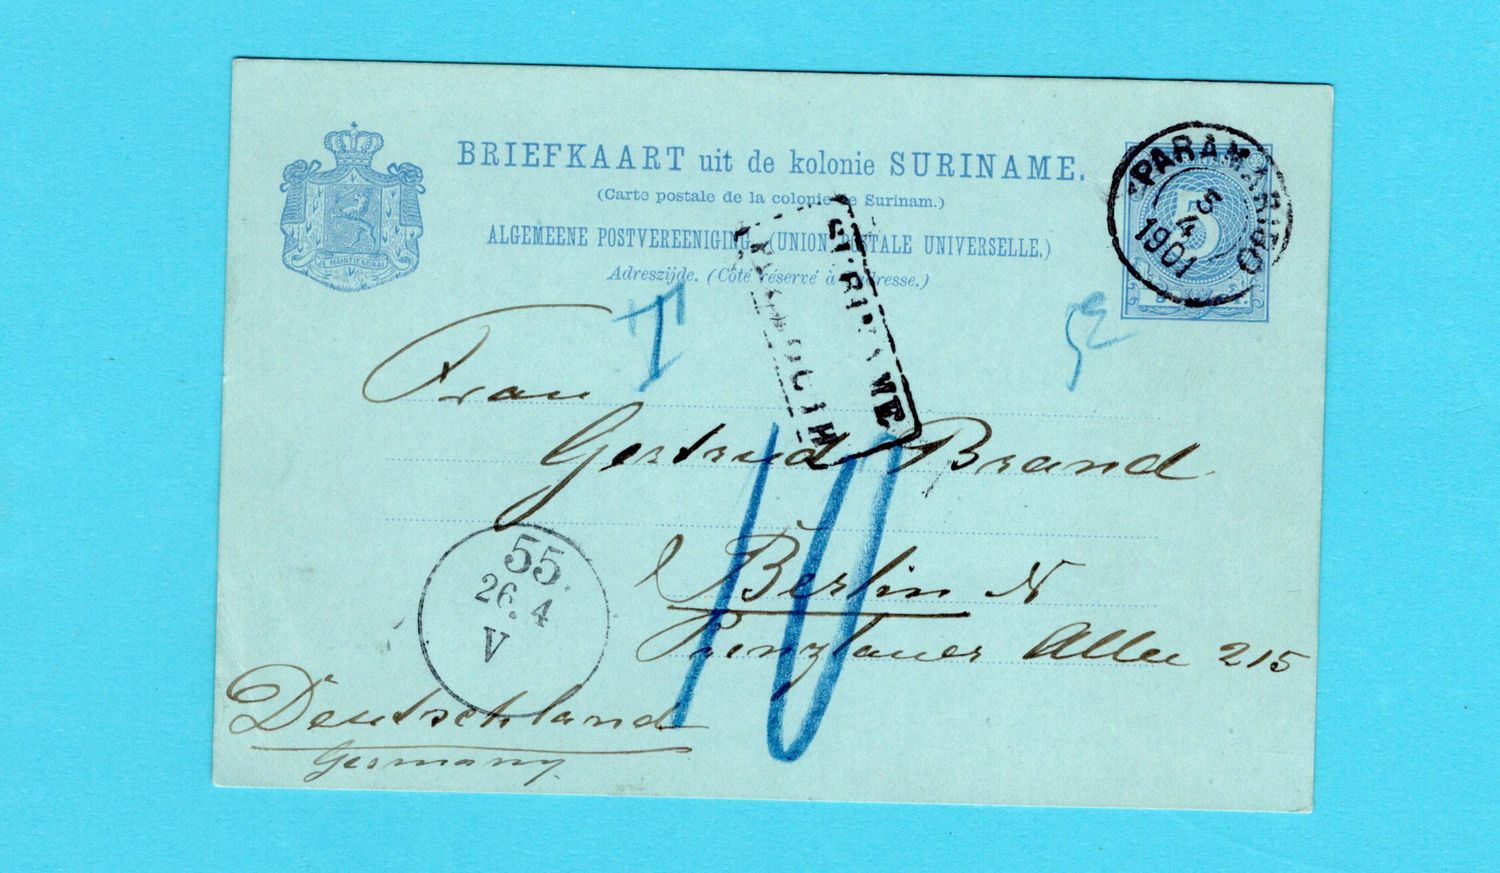 BRIEFKAART uit de kolonie SURINAME.
(Carte postale de la colonie de Surinam.)
ALGEMEENE POSTVEREENIGING. (UNION POSTALE UNIVERSELLE.)
Adreszijde. (Côté réservé à l'adresse.)
JE MAINTIENDRAI
PARAMARIBO
5
4
1901
5
T
SURINAME
Frau
Gertrud Brand
10
Berlin N
Prenzlauer Allee 215
55.
26. 4
V
Deutschland
Germany.